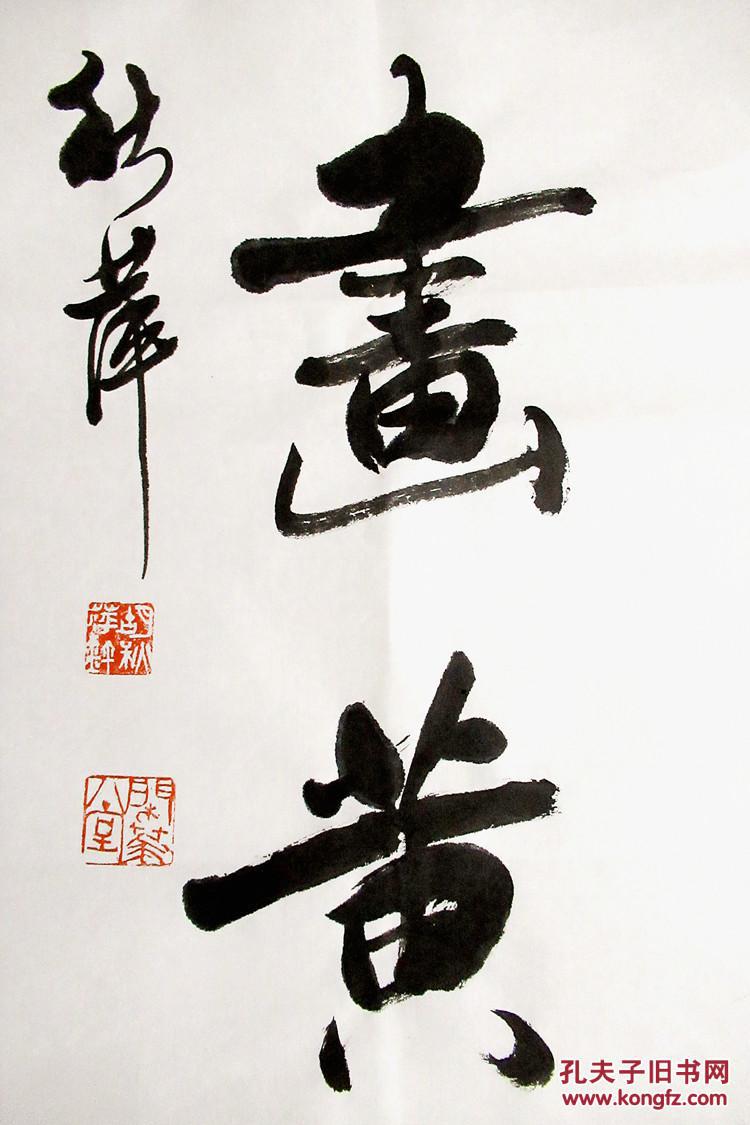 畫黄
秋萍
胡秋
萍鉨
孔夫子旧书网
www.kongfz.com